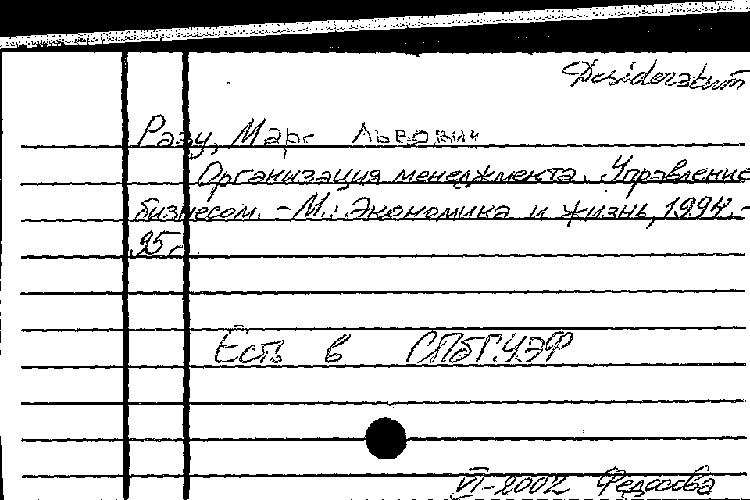 Desideratum
Разу, Марс Львович
Организация менеджмента. Управление
бизнесом. - М.: Экономика и жизнь, 1994. -
95 с.
Есть в СПбГУЭФ
VI-2002